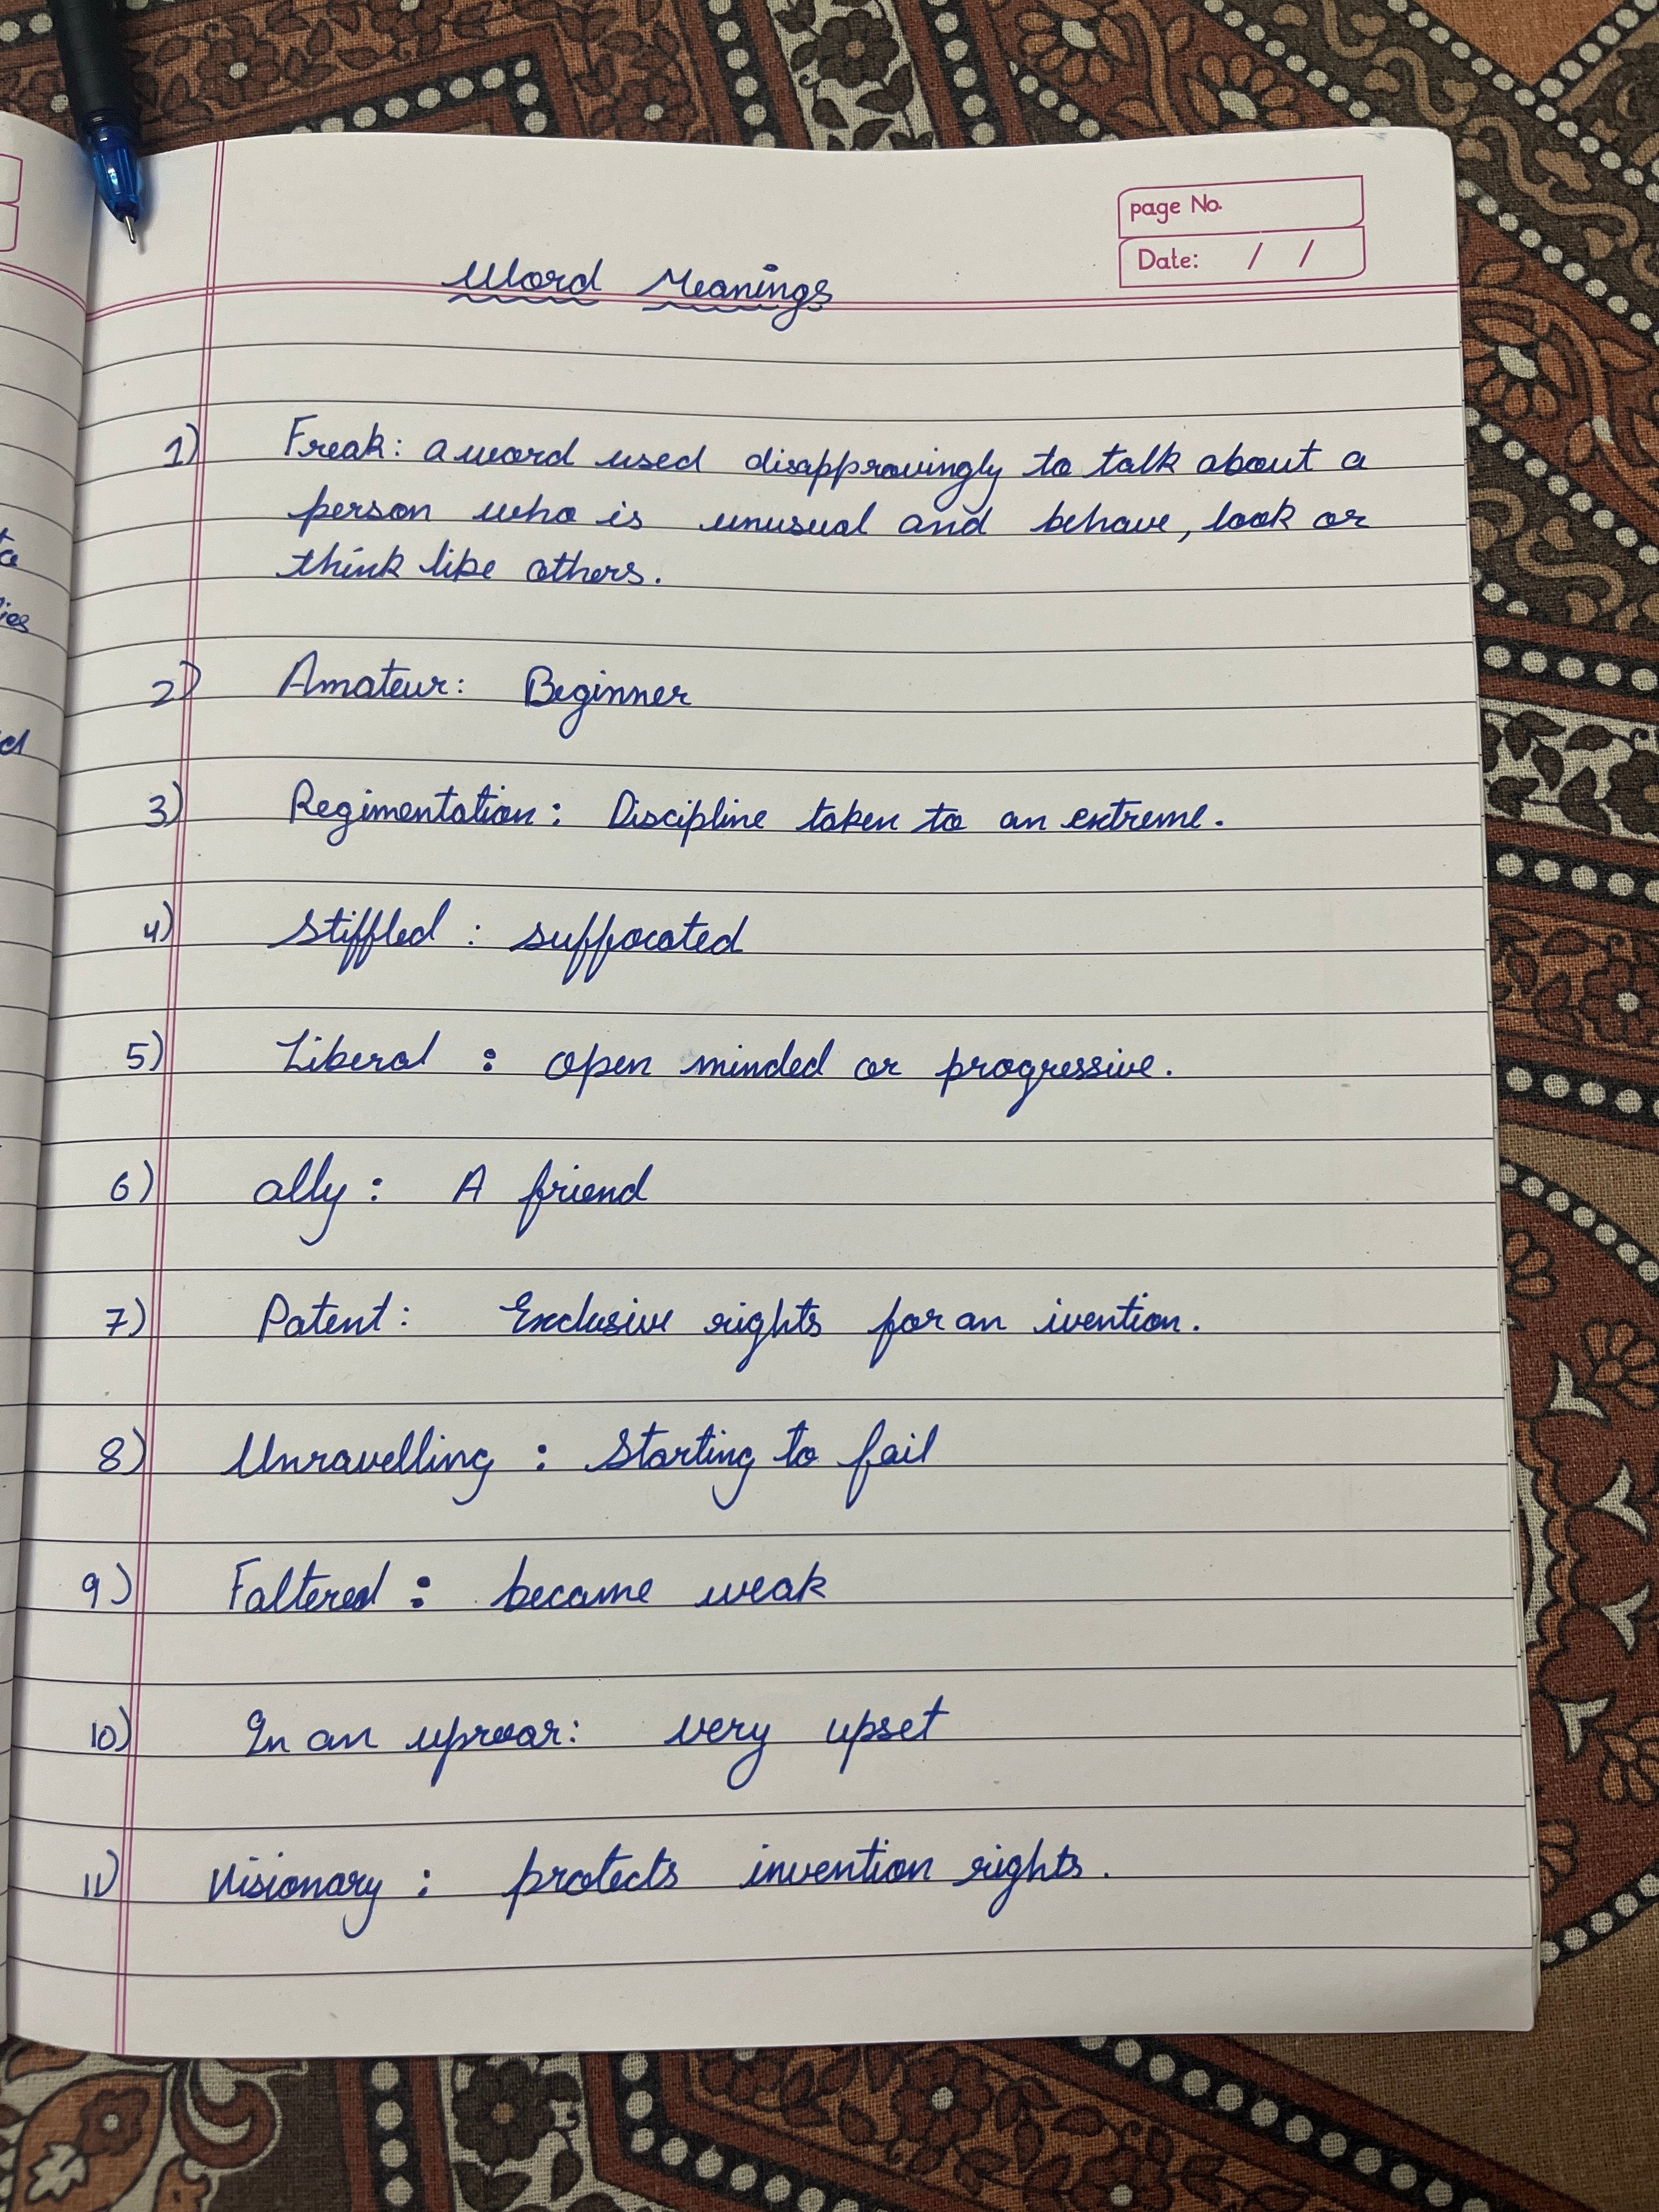 page No.
Date: / /
Word Meanings
1) Freak: a word used disapprovingly to talk about a
person who is unusual and behave, look or
think like others.
2) Amateur: Beginner
3) Regimentation: Discipline taken to an extreme.
4) Stiffled: suffocated
5) Liberal : open minded or progressive.
6) ally: A friend
7) Patent: Exclusive rights for an ivention.
8) Unravelling : Starting to fail
9) Faltered : became weak
10) In an uproar: very upset
11) Visionary : protects invention rights.